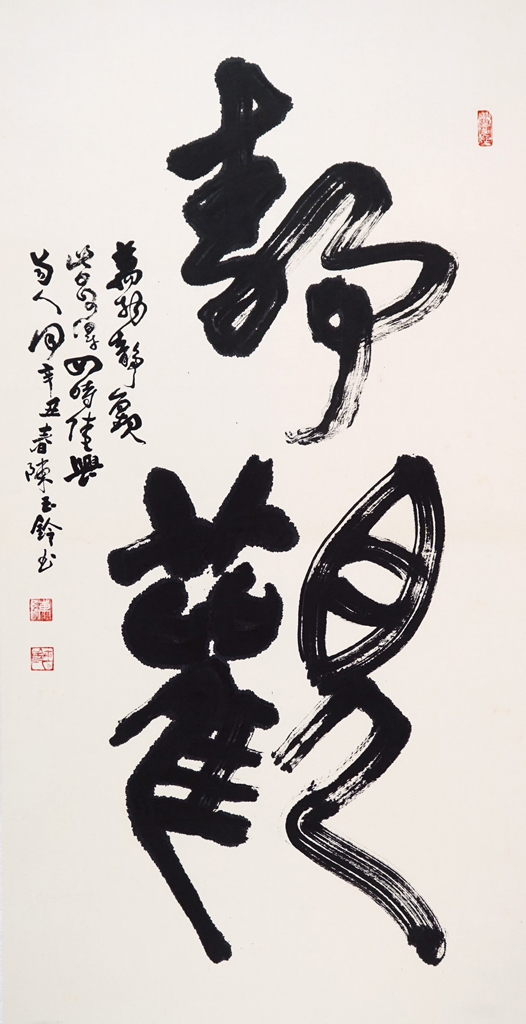 靜觀
萬物靜觀
皆自得四時佳興
與人同辛丑春陳玉鈴書